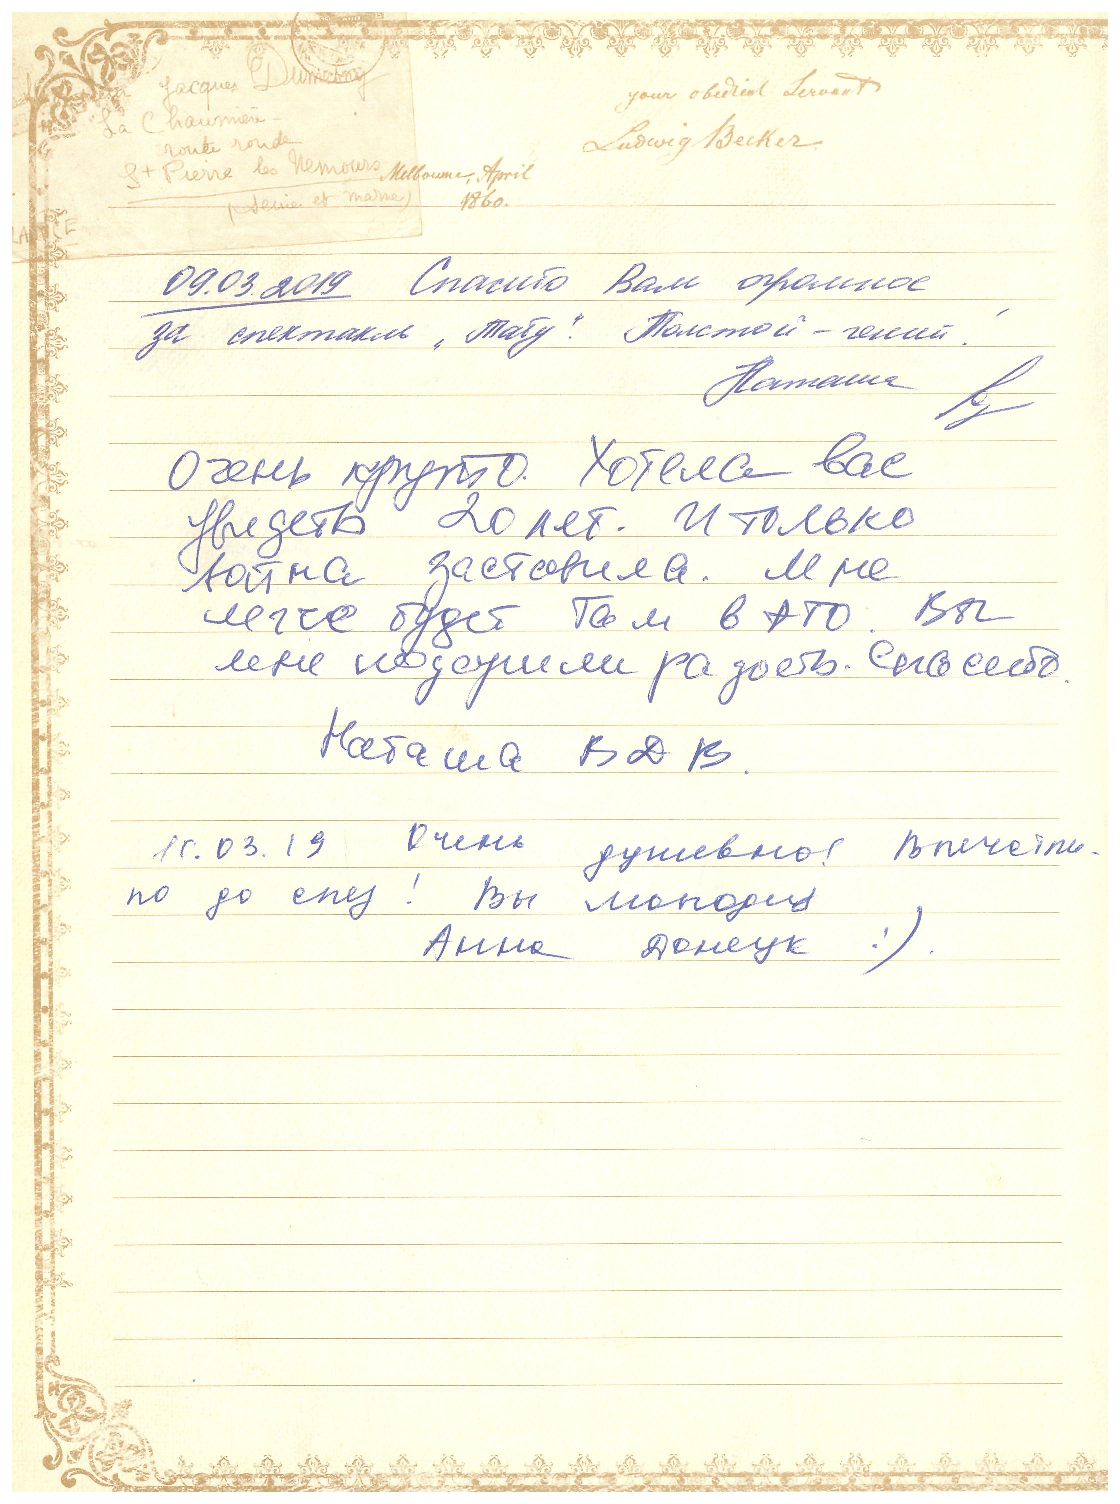 Jacques Dumesny
La Chaumière
route ronde
St Pierre les Nemours
(seine et marne)
your obedient Servant
Ludwig Becker
Melbourne, April
1860.
09.03.2019 Спасибо Вам огромное
за спектакль „Тату“. Толстой – гений!
Наташа
Очень круто. Хотела вас
увидеть 20 лет. И только
война заставила. Мне
легче будет там в АТО. Вы
мне подарили радость. Спасибо.
Наташа ВДВ.
.03.19 Очень душевно! Впечатли-
ло до слез! Вы молодцы
Анна Донецк :).